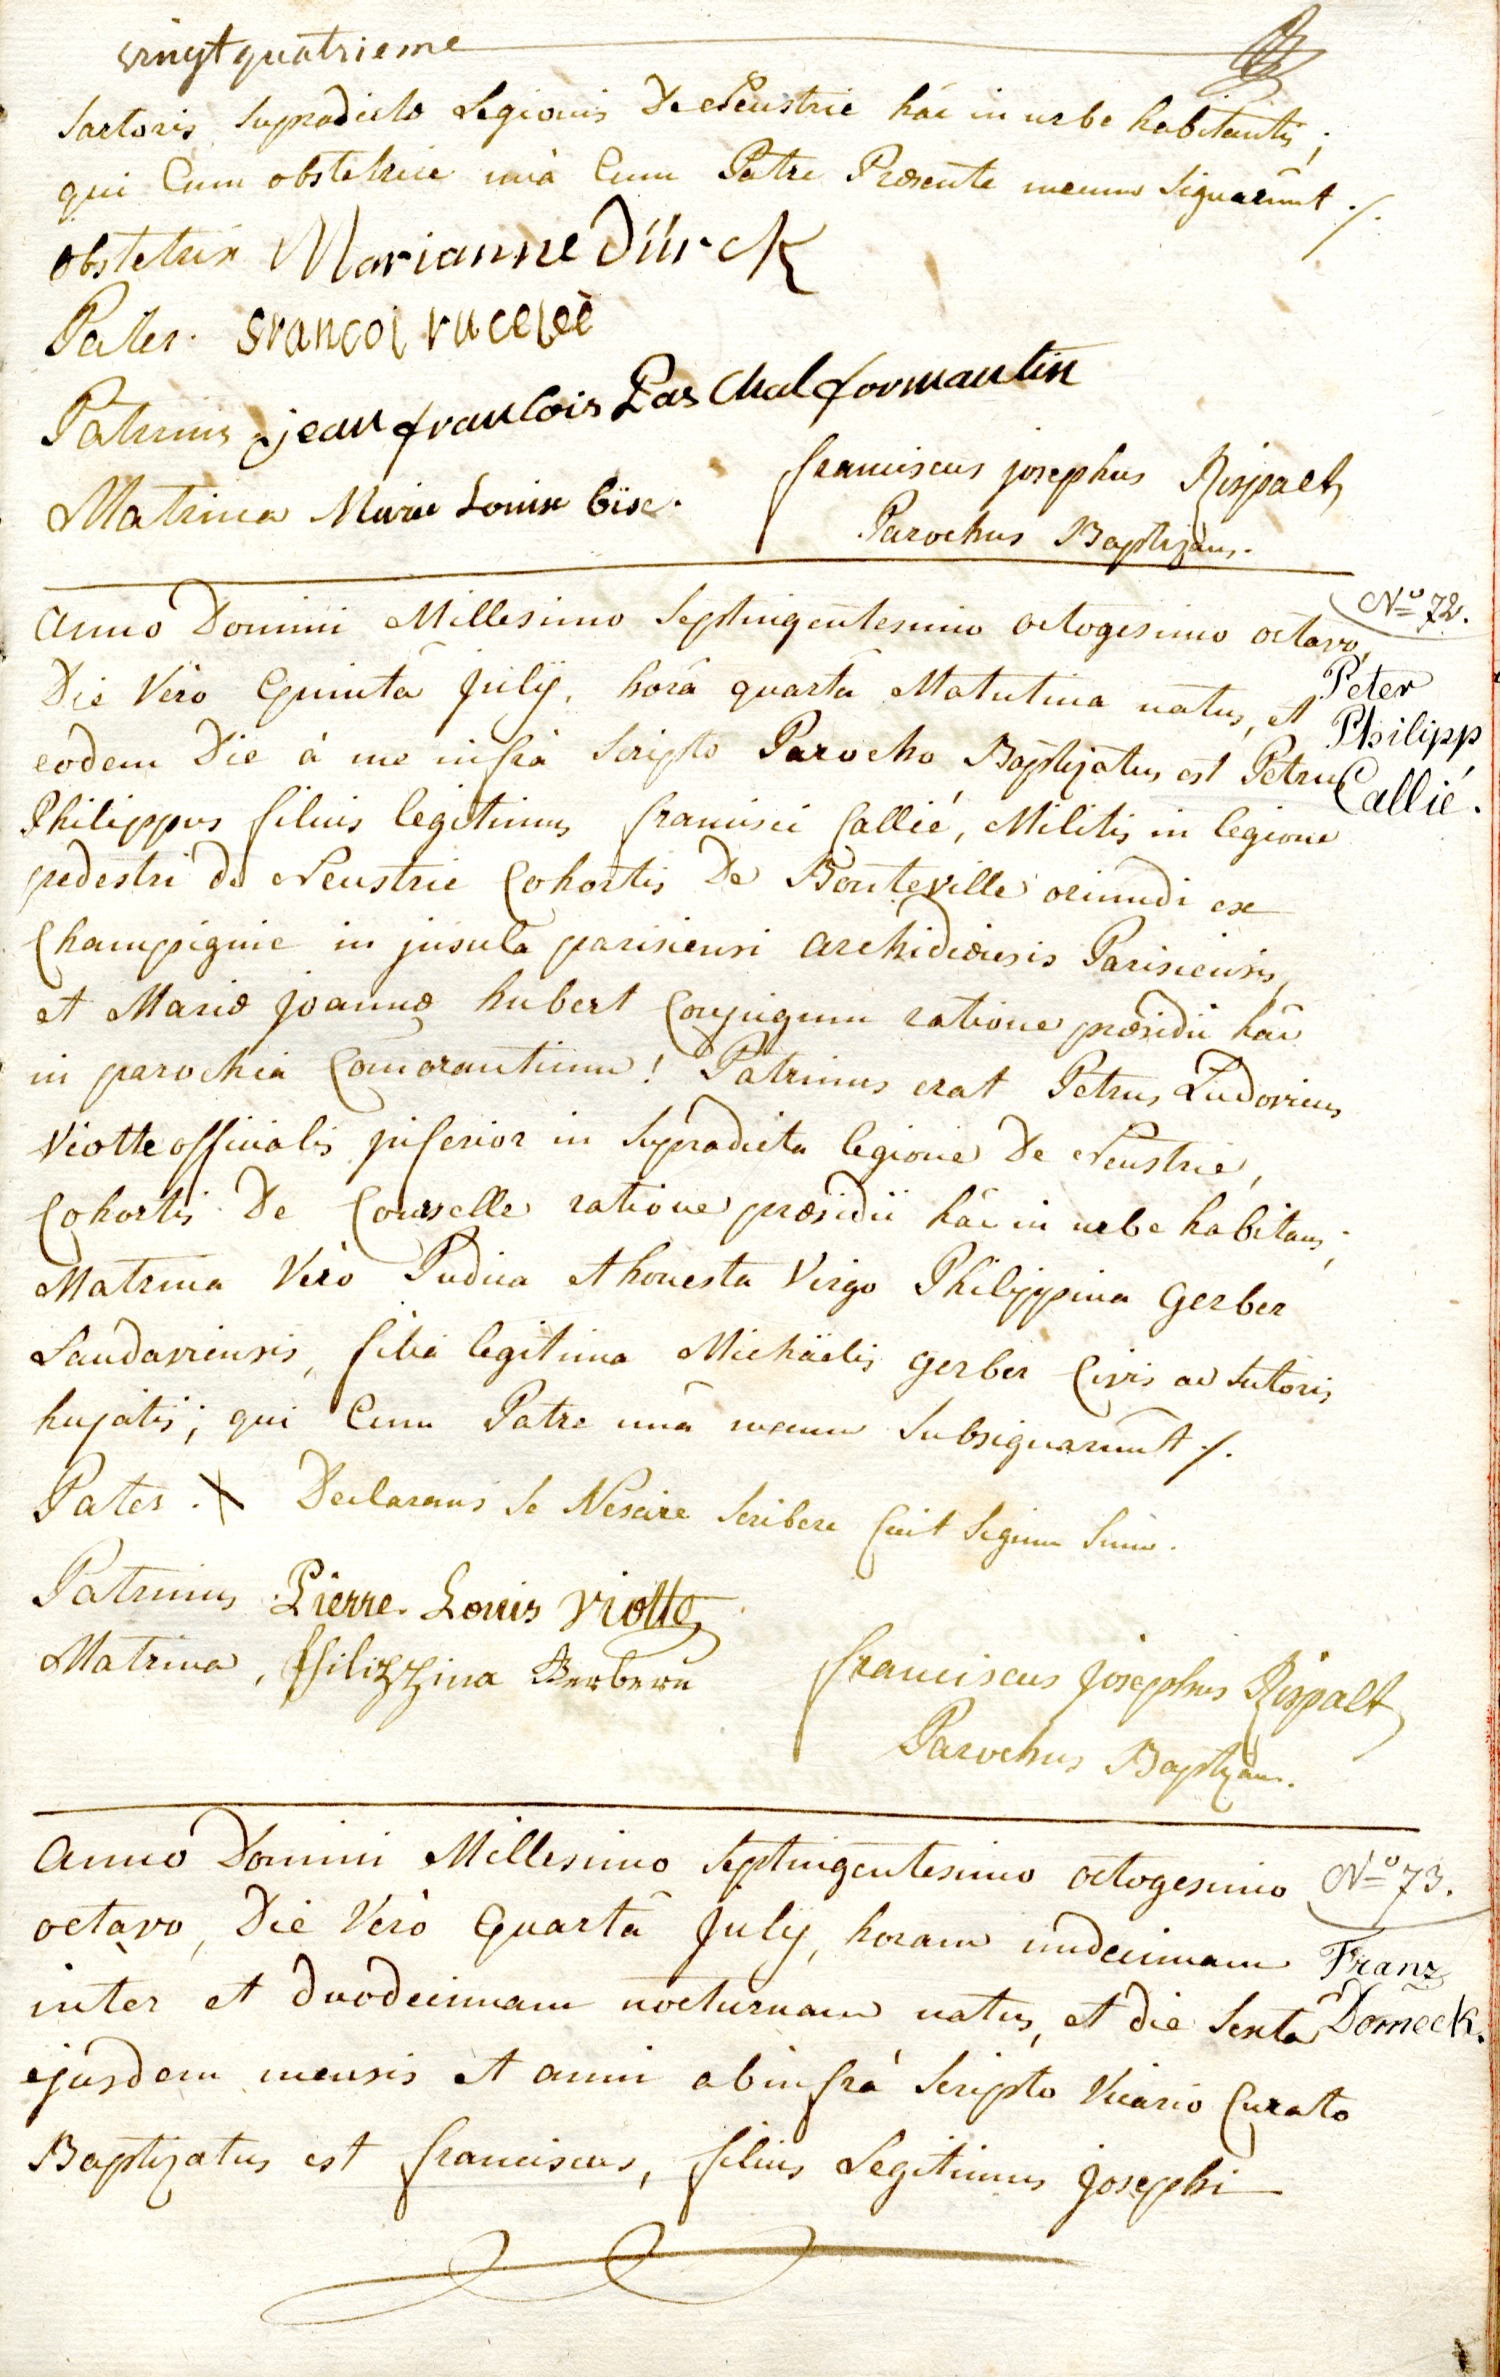 vingt quatrieme
Sartoris Supradictæ Legionis De Neustrie hâc in urbe habitantis;
qui Cum obstetrice unà Cum Patre Præsente mecum Signarûnt ./.
obstetrix Marianne Dürck
Pater.
Patrinus jean francois Paschal formantin
Matrina Marie Louise bise.
franciscus josephus Rispalt
Parochus Baptizans.
Nº 72.
Anno Domini Millesimo Septingentesimo octogesimo octavo,
Die Vèro Quintâ julÿ, horâ quartâ Matutina natus, et
eodem Die à me infrà Scripto Parocho Baptizatus est Petrus
Peter
Philipp
Callié.
Philippus filius legitimus francisci Callié, Militis in legione
pedestri de Neustrie Cohortis De Bonteville oriundi ex
Champignie in jnsula parisiensi archidiœcesis Parisiensis,
et Mariæ joannæ hubert Conjugum ratione præsidii hâc
in parochia Comorantium! Patrinus erat Petrus Ludovicus
Viotte officialis jnferior in Supradicta legione De Neustrie,
Cohortis De Courselle ratione præsidii hâc in urbe habitans;
Matrina Vèrò Pudica et honesta Virgo Philippina Gerber
Landaviensis, filia legitima Michäelis gerber Civis ac Sutoris
hujatis; qui Cum Patre unâ mecum Subsignarûnt ./.
Pater . X Declarans Se Nescire Scribere fecit Signum Suum.
Patrinus Pierre Louis Viotte
Matrina, filizzina Gerbern
franciscus josephus Rispalt
Parochus Baptizans.
Nº 73.
Anno Domini Millesimo Septingentesimo octogesimo
octavo, Die Vèrò Quartâ july, horam undecimam
Franz
Dorneck.
inter et duodecimam nocturnam natus, et die Sextâ
ejusdem mensis et anni ab infrà Scripto Vicario Curato
Baptizatus est franciscus, filius Legitimus josephi